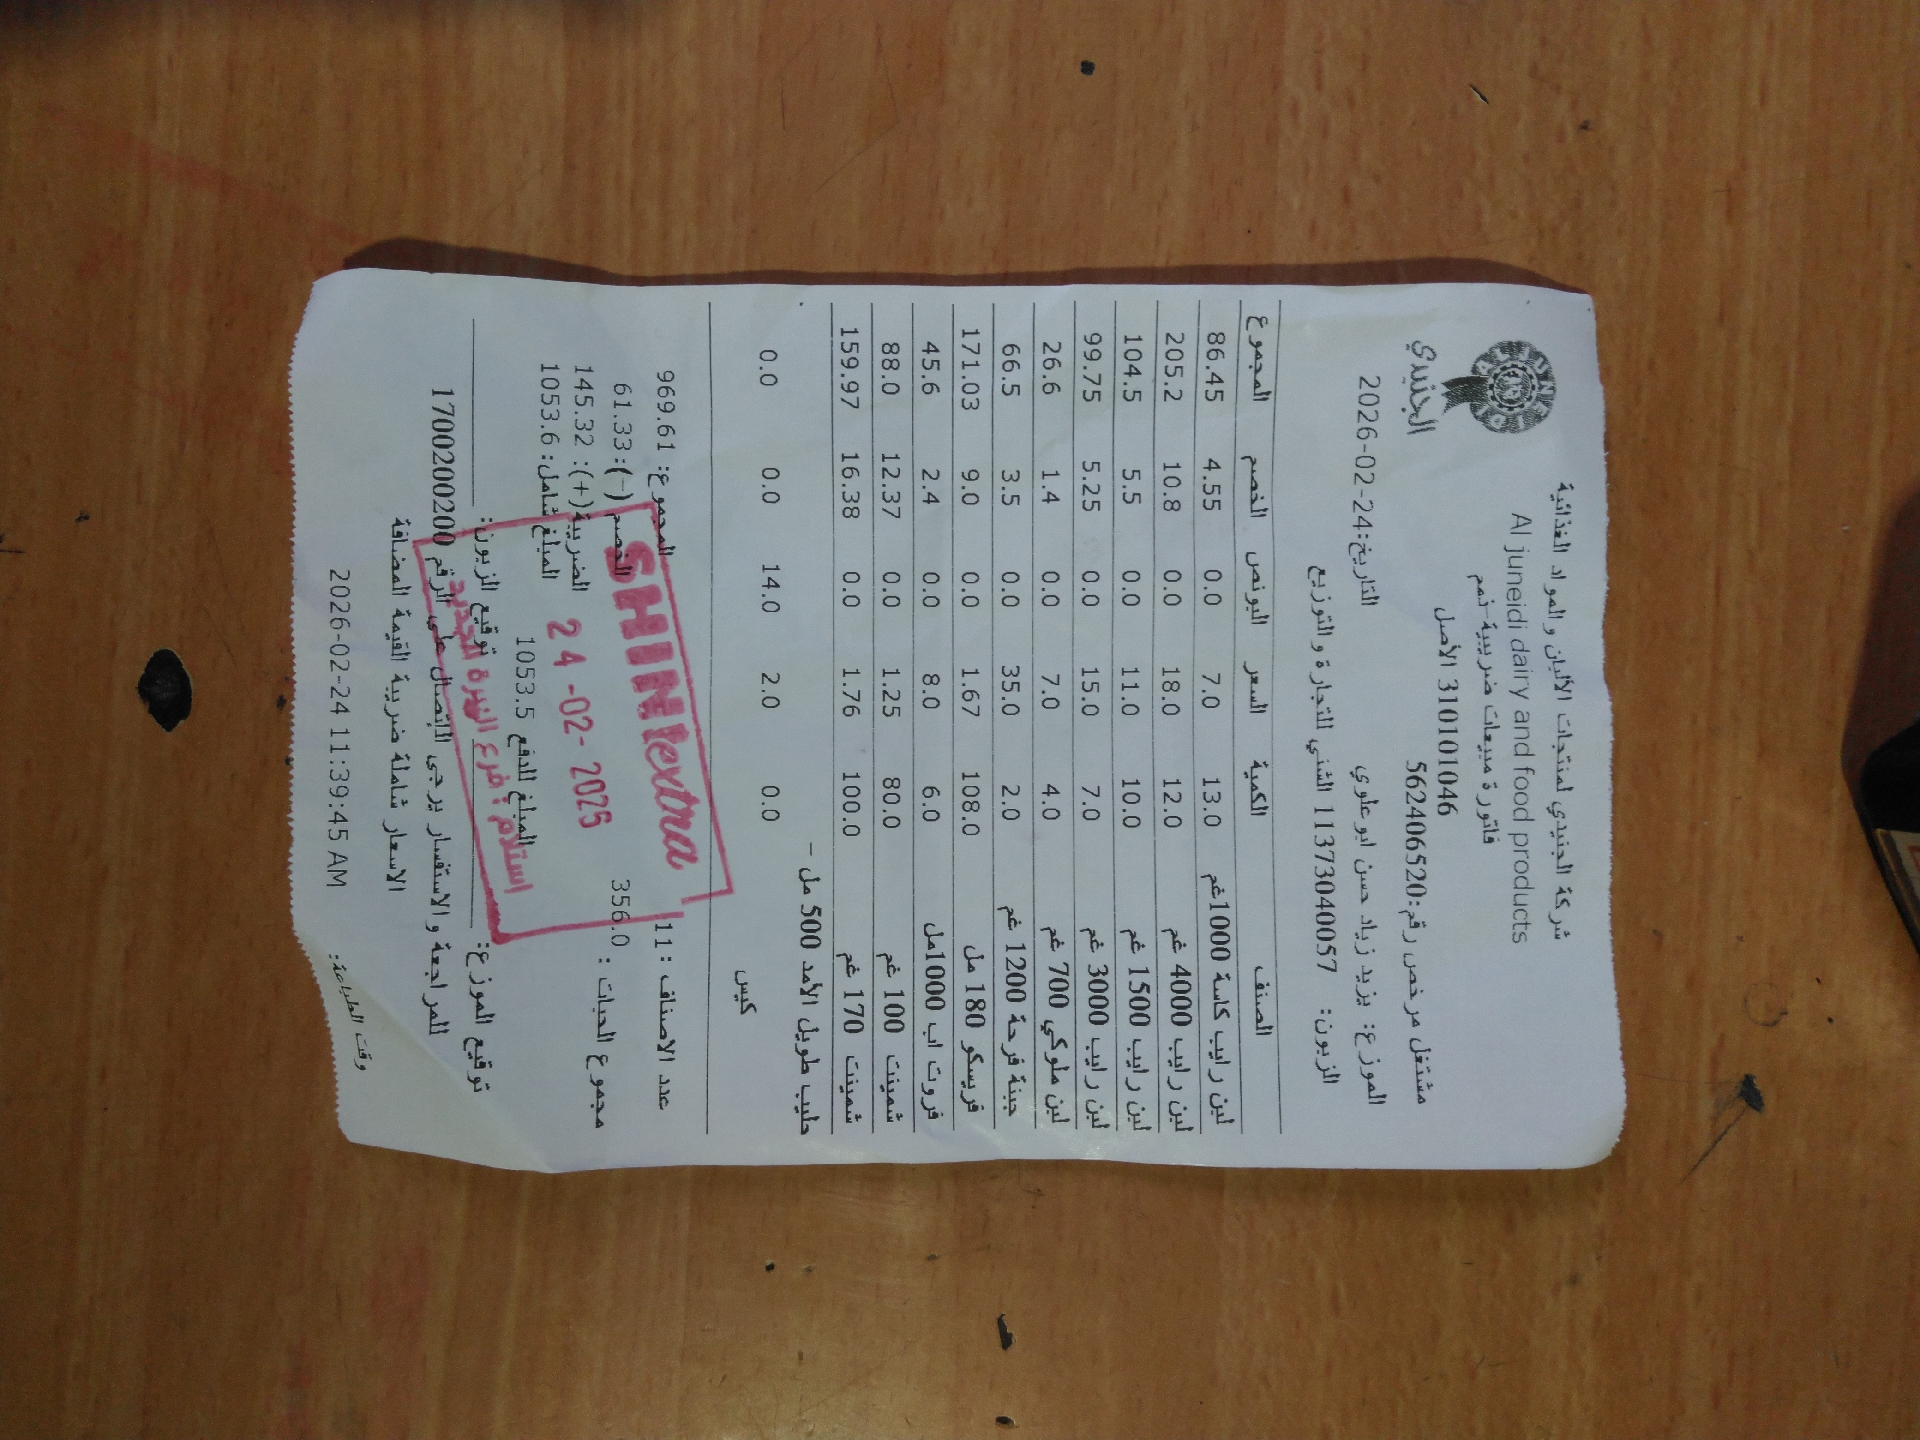 الجنيدي
شركة الجنيدي لمنتجات الألبان و المواد الغذائية
Al juneidi dairy and food products
فاتورة مبيعات ضريبية-ذمم
310101046 الأصل
مشتغل مرخص رقم:562406520
الموزع: يزيد زياد حسن ابو علوي التاريخ:2026-02-24
الزبون: 11373040057 الشني للتجارة و التوزيع
الصنف الكمية السعر البونص الخصم المجموع
لبن رايب كاسة 1000غم 13.0 7.0 0.0 4.55 86.45
لبن رايب 4000 غم 12.0 18.0 0.0 10.8 205.2
لبن رايب 1500 غم 10.0 11.0 0.0 5.5 104.5
لبن رايب 3000 غم 7.0 15.0 0.0 5.25 99.75
لبن ملوكي 700 غم 4.0 7.0 0.0 1.4 26.6
جبنة فرحة 1200 غم 2.0 35.0 0.0 3.5 66.5
فريسكو 180 مل 108.0 1.67 0.0 9.0 171.03
فروت اب 1000مل 6.0 8.0 0.0 2.4 45.6
شمينت 100 غم 80.0 1.25 0.0 12.37 88.0
شمينت 170 غم 100.0 1.76 0.0 16.38 159.97
حليب طويل الأمد 500 مل -
0.0 2.0 14.0 0.0 0.0
كيس
عدد الاصناف : 11 المجموع: 969.61
مجموع الحبات : 356.0 الخصم (-): 61.33
الضريبة(+): 145.32
المبلغ شامل: 1053.6
المبلغ للدفع 1053.5
SHINIextra
24 -02- 2026
استلام / فرع النيرة الجديد
توقيع الموزع: توقيع الزبون:
للمراجعة و الاستفسار يرجى الاتصال على الرقم 1700200200
الاسعار شاملة ضريبة القيمة المضافة
وقت الطباعة: 2026-02-24 11:39:45 AM